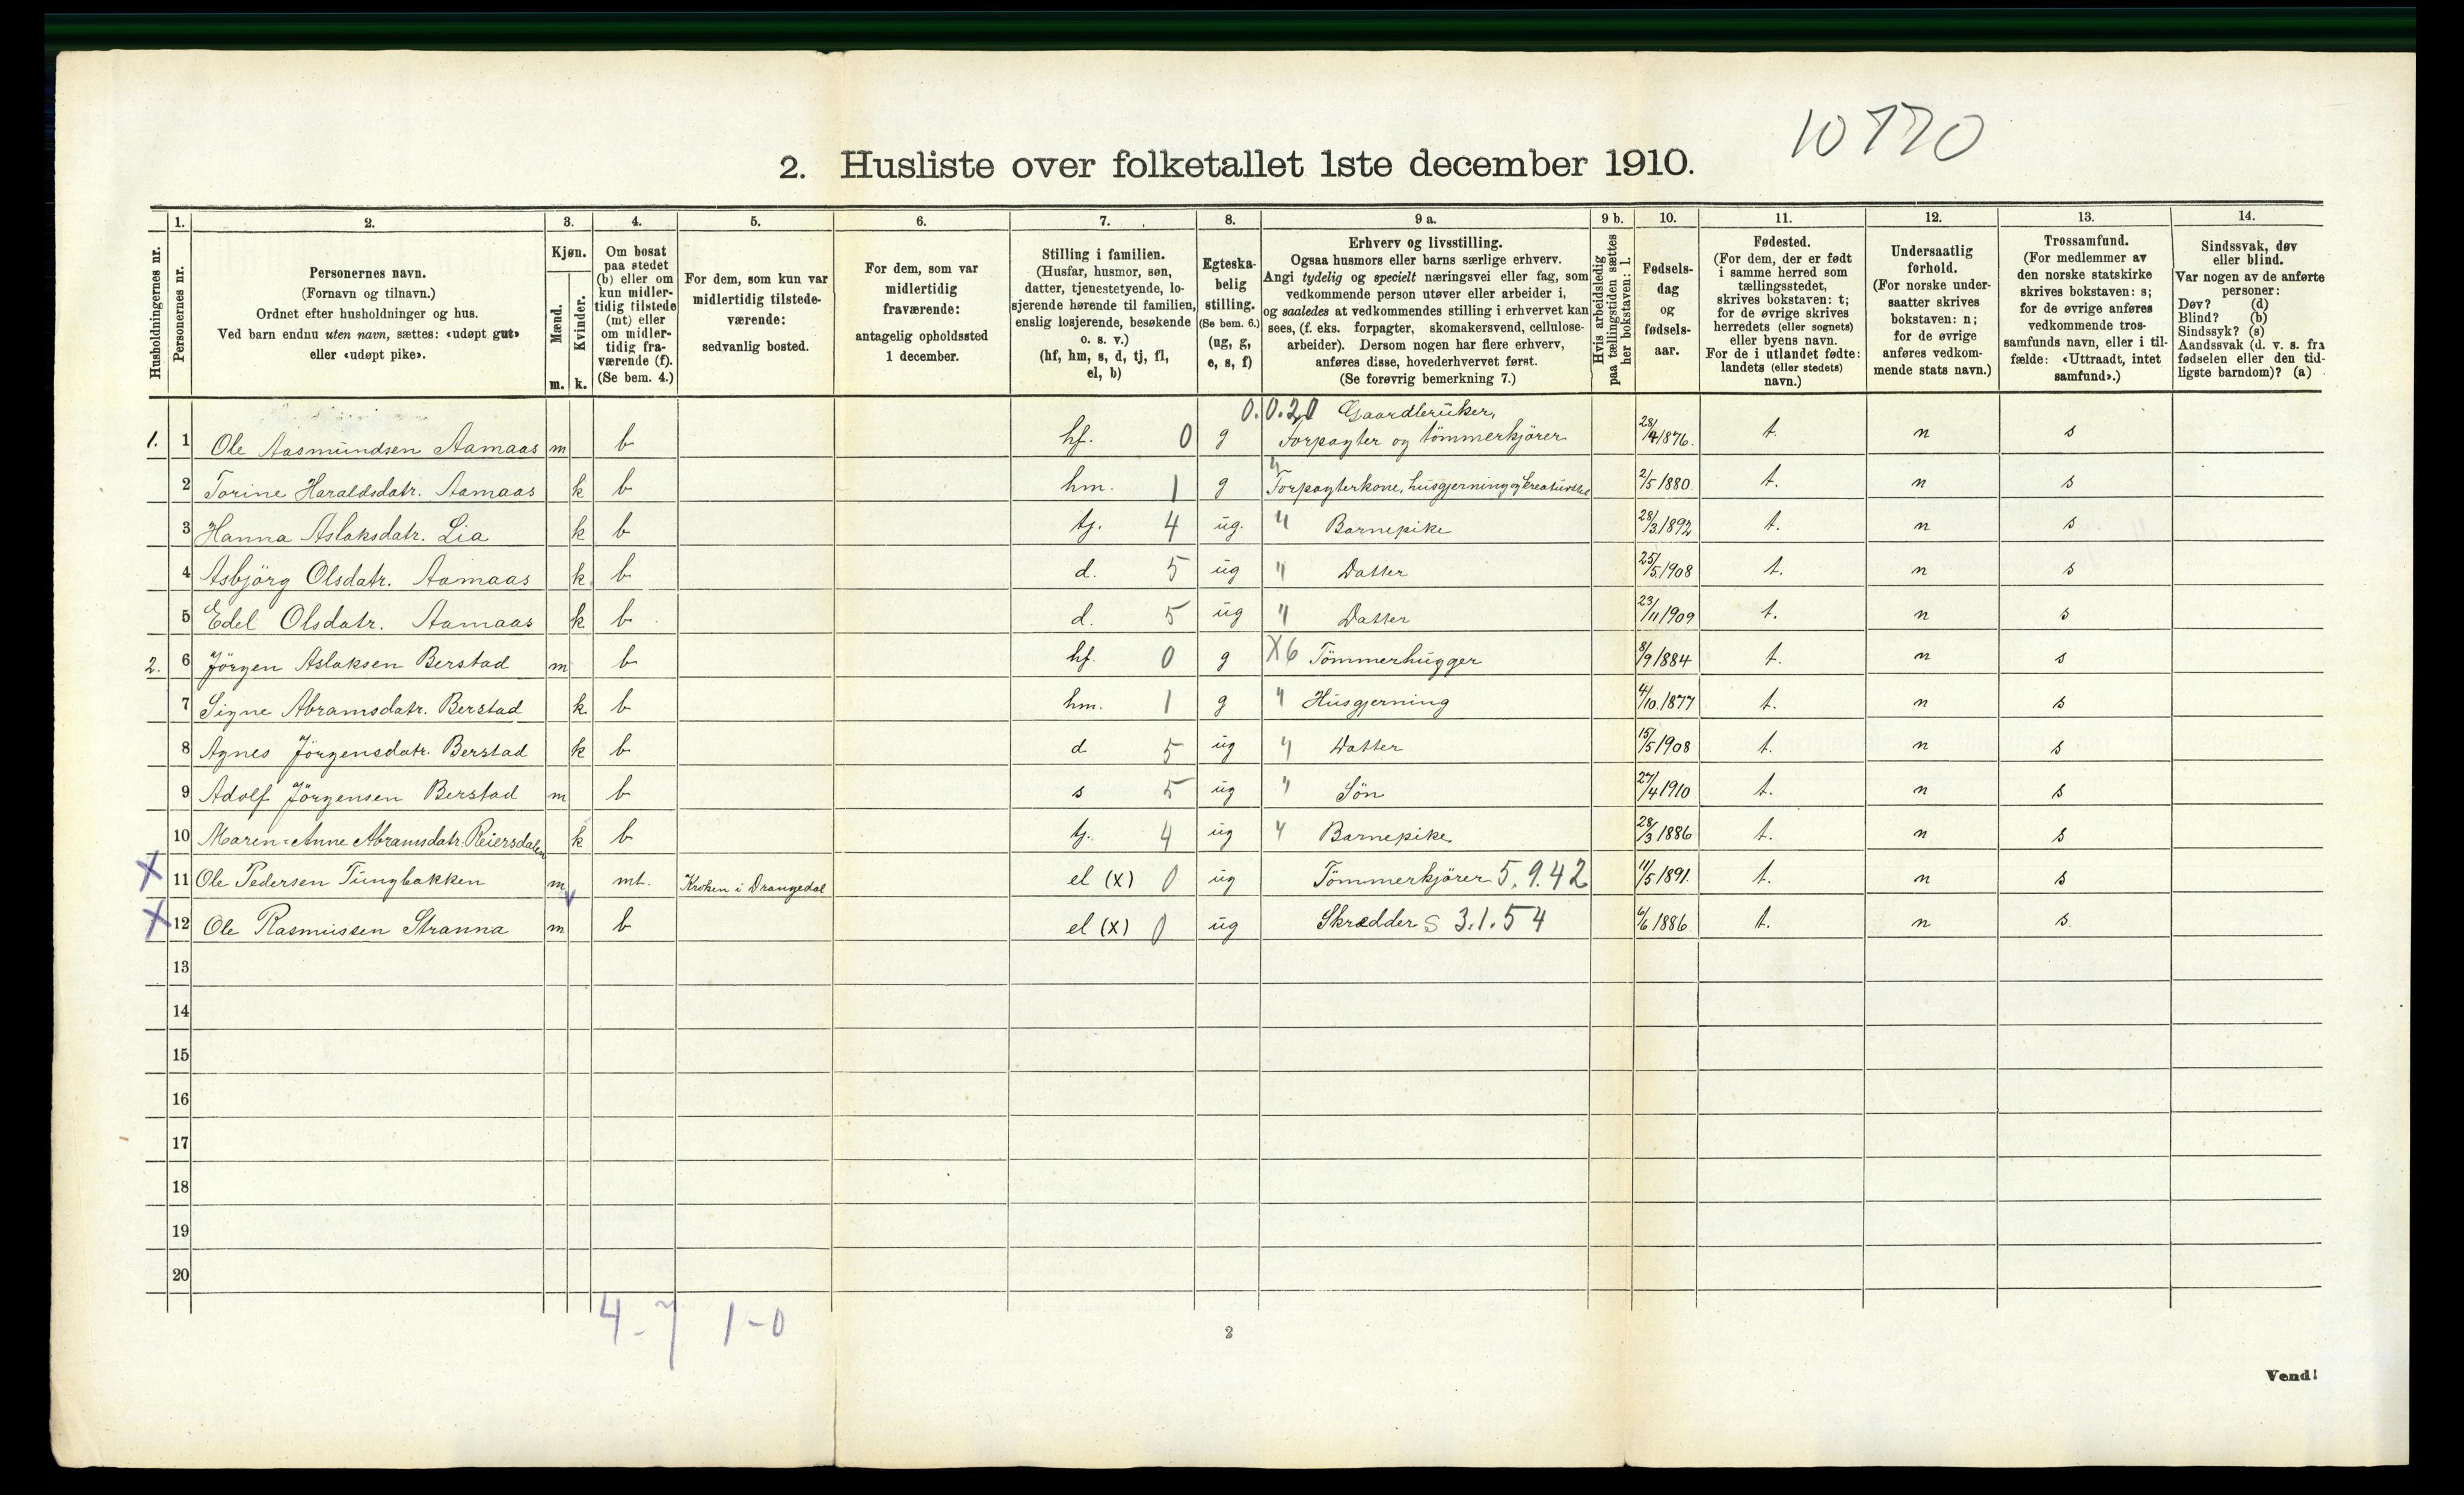 10770
2. Husliste over folketallet 1ste december 1910.
Husholdningernes nr.
1.
Personernes nr.
2.
Personernes navn.
(Fornavn og tilnavn.)
Ordnet efter husholdninger og hus.
Ved barn endnu uten navn, sættes: «udøpt gut»
eller «udøpt pike».
3.
Kjøn.
Mænd.
Kvinder.
m. k.
4.
Om bosat
paa stedet
(b) eller om
kun midler-
tidig tilstede
(mt) eller
om midler-
tidig fra-
værende (f).
(Se bem. 4.)
5.
For dem, som kun var
midlertidig tilstede-
værende:
sedvanlig bosted.
6.
For dem, som var
midlertidig
fraværende:
antagelig opholdssted
1 december.
7.
Stilling i familien.
(Husfar, husmor, søn,
datter, tjenestetyende, lo-
sjerende hørende til familien,
enslig losjerende, besøkende
o. s. v.)
(hf, hm, s, d, tj, fl,
el, b)
8.
Egteska-
belig
stilling.
(Se bem. 6.)
(ug, g,
e, s, f)
9 a.
Erhverv og livsstilling.
Ogsaa husmors eller barns særlige erhverv.
Angi tydelig og specielt næringsvei eller fag, som
vedkommende person utøver eller arbeider i,
og saaledes at vedkommendes stilling i erhvervet kan
sees, (f. eks. forpagter, skomakersvend, cellulose-
arbeider). Dersom nogen har flere erhverv,
anføres disse, hovederhvervet først.
(Se forøvrig bemerkning 7.)
9 b.
Hvis arbeidsledig
paa tællingstiden sættes
her bokstaven: l.
10.
Fødsels-
dag
og
fødsels-
aar.
11.
Fødested.
(For dem, der er født
i samme herred som
tællingsstedet,
skrives bokstaven: t;
for de øvrige skrives
herredets (eller sognets)
eller byens navn.
For de i utlandet fødte:
landets (eller stedets)
navn.)
12.
Undersaatlig
forhold.
(For norske under-
saatter skrives
bokstaven: n;
for de øvrige
anføres vedkom-
mende stats navn.)
13.
Trossamfund.
(For medlemmer av
den norske statskirke
skrives bokstaven: s;
for de øvrige anføres
vedkommende tros-
samfunds navn, eller i til-
fælde: «Uttraadt, intet
samfund».)
14.
Sindssvak, døv
eller blind.
Var nogen av de anførte
personer:
Døv? (d)
Blind? (b)
Sindssyk? (s)
Aandssvak (d. v. s. fra
fødselen eller den tid-
ligste barndom)? (a)
0.0.20 Gaardbruker,
1. 1 Ole Aasmundsen Aamaas m b hf. 0 g Forpagter og tömmerkjörer 28/4 1876. t. n s
2 Torine Haraldsdatr. Aamaas k b hm. 1 g " Forpagterkone, husgjerning og kreaturstel 2/5 1880. t. n s
3 Hanna Aslaksdatr. Lia k b tj. 4 ug. " Barnepike 28/3 1892 t. n s
4 Asbjörg Olsdatr. Aamaas k b d. 5 ug " Datter 25/5 1908 t. n s
5 Edel Olsdatr. Aamaas k b d. 5 ug " Datter 23/11 1909 t. n s
2. 6 Jörgen Aslaksen Berstad m b hf. 0 g X6 Tömmerhugger 8/9 1884 t. n s
7 Signe Abramsdatr. Berstad k b hm. 1 g " Husgjerning 4/10 1877 t. n s
8 Agnes Jörgensdatr. Berstad k b d 5 ug " Datter 15/5 1908 t. n s
9 Adolf Jörgensen Berstad m b s 5 ug " Sön 27/4 1910 t. n s
10 Maren-Anne Abramsdatr. Reiersdalen k b tj. 4 ug " Barnepike 28/3 1886 t. n s
X 11 Ole Pedersen Tungbakken m mt. Kroken i Drangedal el (x) 0 ug Tömmerkjörer 5.9.42 11/5 1891. t. n s
X 12 Ole Rasmussen Stranna m b el (x) 0 ug Skrædder S 3.1.54 6/6 1886 t. n s.
13
14
15
16
17
18
19
20
4-7 1-0
2
Vend!